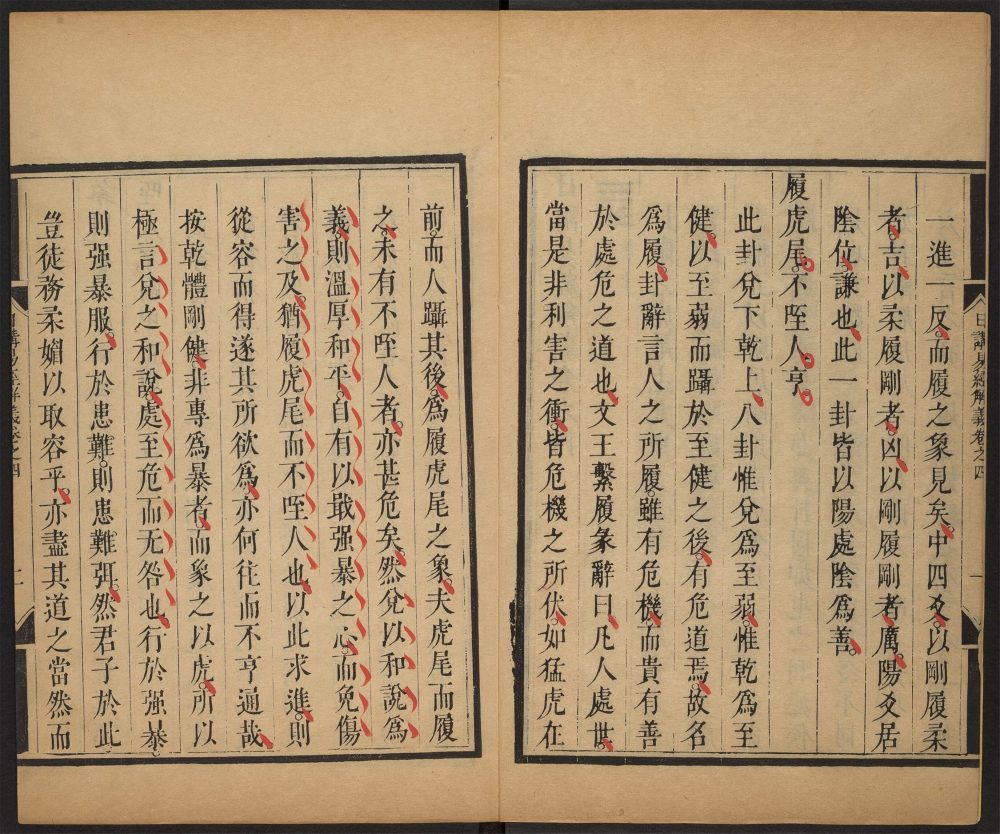 一進一反而履之象見矣中四爻以剛履柔
者吉以柔履剛者凶以剛履剛者厲陽爻居
陰位謙也此一卦皆以陽處陰爲善
履虎尾不咥人亨
此卦兌下乾上八卦惟兌爲至弱惟乾爲至
健以至弱而躡於至健之後有危道焉故名
爲履卦辭言人之所履雖有危機而貴有善
於處危之道也文王繫履彖辭曰凡人處世
當是非利害之衝皆危機之所伏如猛虎在
日講易經解義卷之四
一
前而人躡其後爲履虎尾之象夫虎尾而履
之未有不咥人者亦甚危矣然兌以和說爲
義則溫厚和平自有以戢强暴之心而免傷
害之及猶履虎尾而不咥人也以此求進則
從容而得遂其所欲爲亦何往而不亨通哉
按乾體剛健非專爲暴者而象之以虎所以
極言兌之和說處至危而无咎也行於强暴
則强暴服行於患難則患難弭然君子於此
豈徒務柔媚以取容乎亦盡其道之當然而